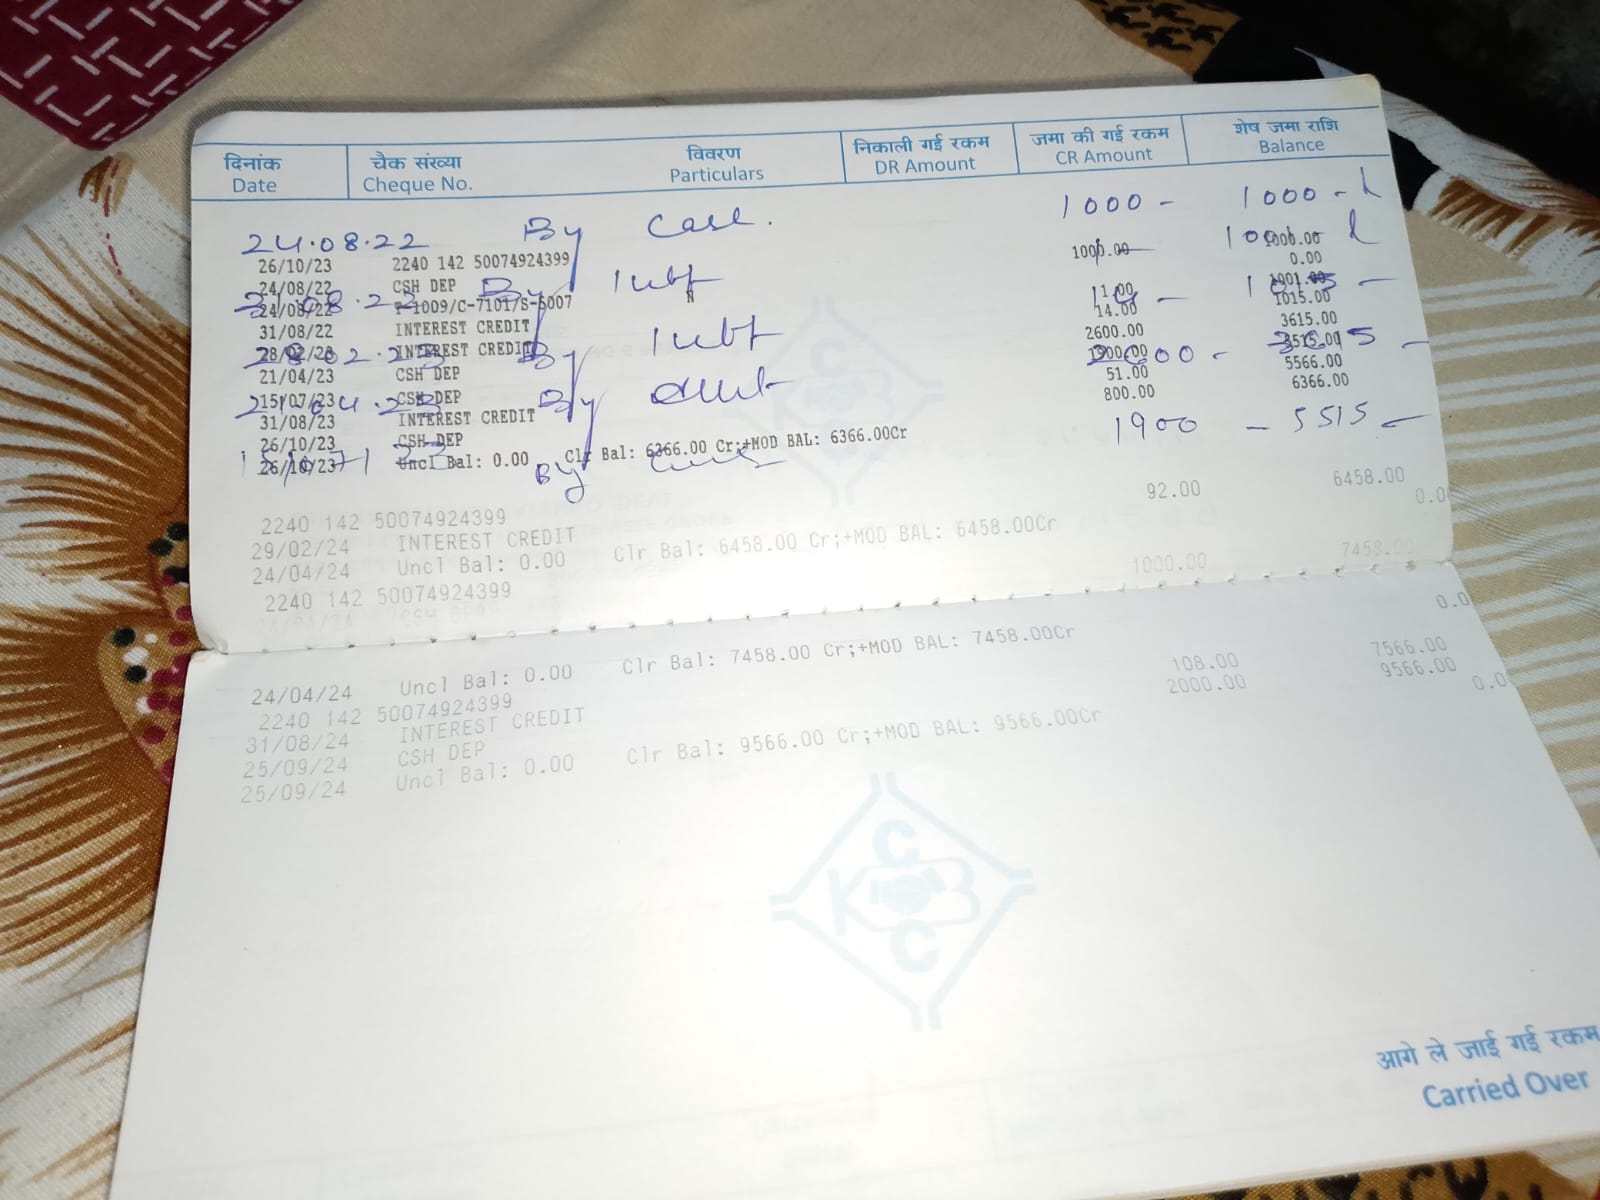 दिनांक चैक संख्या विवरण निकाली गई रकम जमा की गई रकम शेष जमा राशि
Date Cheque No. Particulars DR Amount CR Amount Balance
24.08.22 By 1000 - 1000 -
26/10/23 2240 142 50074924399
24/08/22 CSH DEP 1000.00 1000.00
0.00
24/08/22 1009/C-7101/S-6007
31/08/22 INTEREST CREDIT 1.00 1001.00
28/02/23 INTEREST CREDIT 14.00 1015.00
21/04/23 CSH DEP 2600.00 3615.00
15/07/23 CSH DEP 1900.00 5515.00
31/08/23 INTEREST CREDIT 51.00 5566.00
26/10/23 CSH DEP 800.00 6366.00
26/10/23 Uncl Bal: 0.00 Clr Bal: 6366.00 Cr;+MOD BAL: 6366.00Cr
By 1900 - 5515 -
2240 142 50074924399
29/02/24 INTEREST CREDIT 92.00 6458.00
24/04/24 Uncl Bal: 0.00 Clr Bal: 6458.00 Cr;+MOD BAL: 6458.00Cr
2240 142 50074924399
CSH DEP 1000.00 7458.00
24/04/24 Uncl Bal: 0.00 Clr Bal: 7458.00 Cr;+MOD BAL: 7458.00Cr
2240 142 50074924399
31/08/24 INTEREST CREDIT 108.00 7566.00
25/09/24 CSH DEP 2000.00 9566.00
25/09/24 Uncl Bal: 0.00 Clr Bal: 9566.00 Cr;+MOD BAL: 9566.00Cr
C
K B
C
आगे ले जाई गई रकम
Carried Over